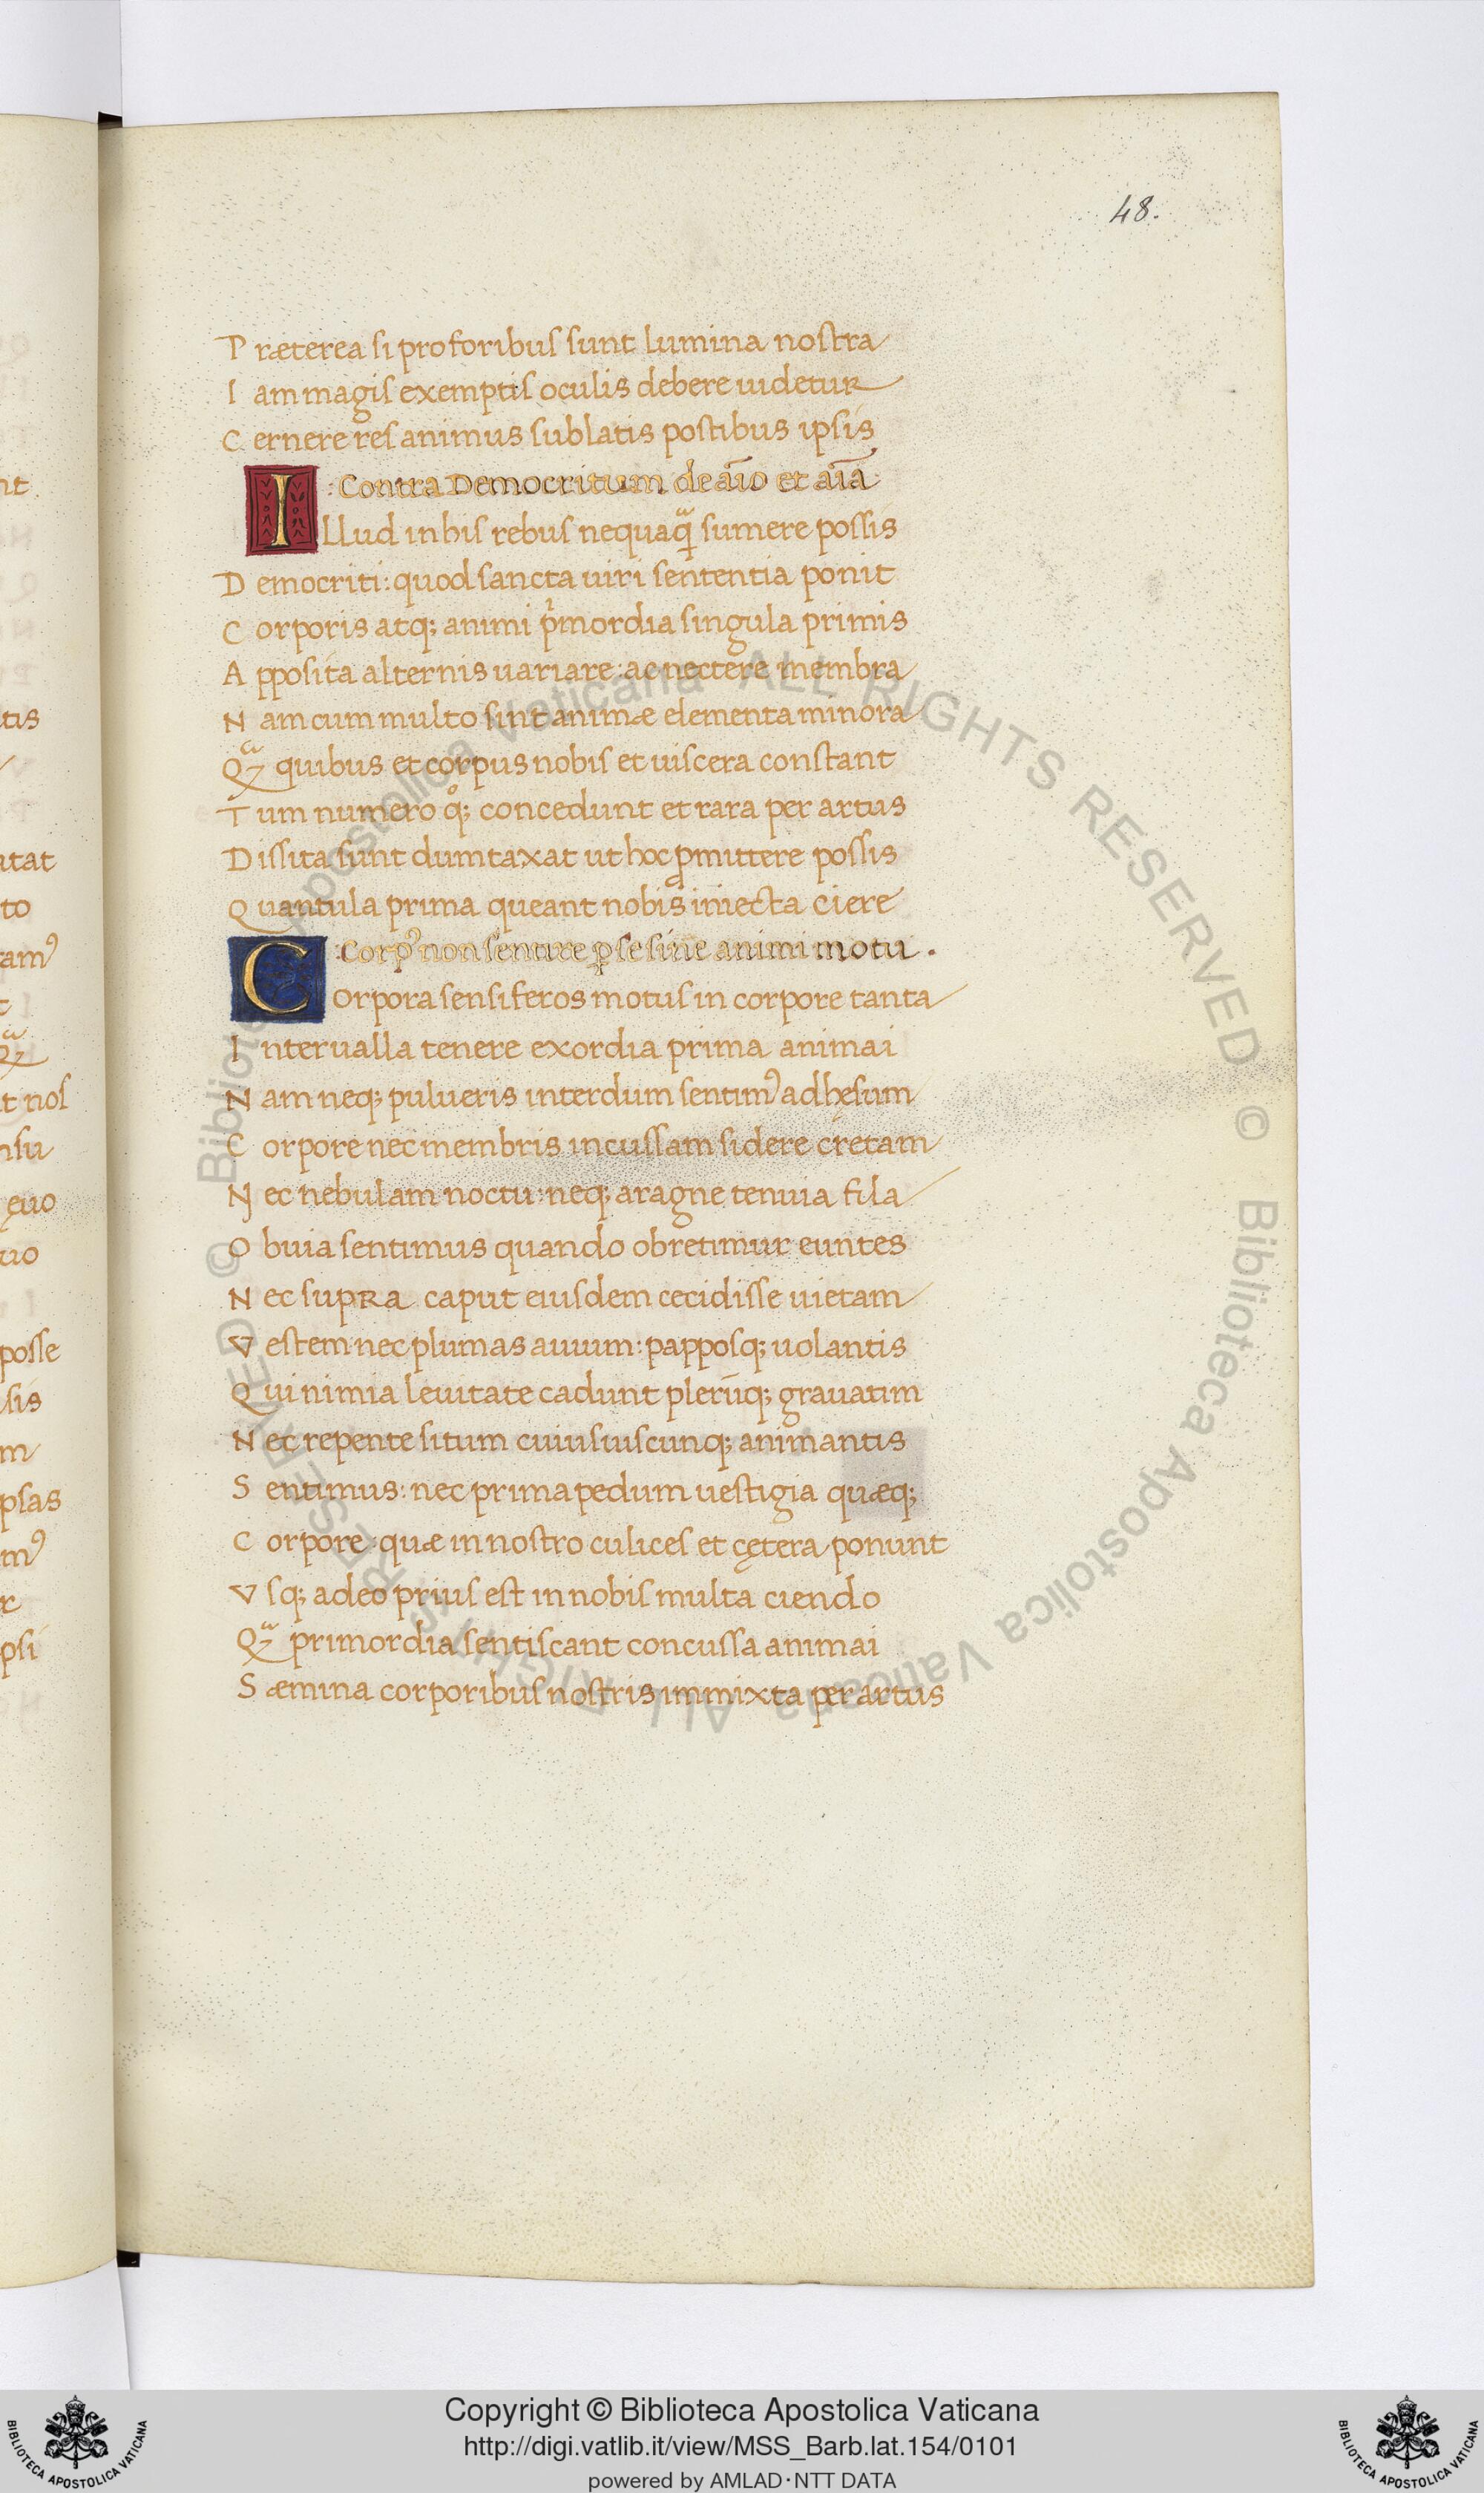 48.
Præterea si pro foribus sunt lumina nostra
Iam magis exemptis oculis debere uidetur
Cernere res animus sublatis postibus ipsis
:Contra Democritum de aīo et aīa
Illud in his rebus nequaqᷓ sumere possis
Democriti: quod sancta uiri sententia ponit
Corporis atq; animi pͥmordia singula primis
Apposita alternis uariare: ac nectere membra
Nam cum multo sint animæ elementa minora
Qᷓ quibus et corpus nobis et uiscera constant
Tum numero qͦ; concedunt et rara per artus
Dissita sunt dumtaxat ut hoc ꝓmittere possis
Quantula prima queant nobis iniecta ciere
:Corpꝰ non sentire ꝑ se sine animi motu.
Corpora sensiferos motus in corpore tanta
Interualla tenere exordia prima animai
Nam neq; pulueris interdum sentimꝰ adhęsum
Corpore nec membris incussam sidere cretam
Nec nebulam noctu: neq; aragne tenuia fila
Obuia sentimus quando obretimur euntes
Nec supra caput eiusdem cecidisse uietam
Vestem nec plumas auium: papposq; uolantis
Qui nimia leuitate cadunt plerūq; grauatim
Nec repente situm cuiusiuscunq; animantis
Sentimus: nec prima pedum uestigia quæq;
Corpore: quæ in nostro culices et cętera ponunt
Vsq; adeo prius est in nobis multa ciendo
Qᷓ primordia sentiscant concussa animai
Sæmina corporibus nostris immixta per artus
nt
tis
utat
to
tamꝰ
t
Qᷓ
t nos
nsu
ęuo
uo
posse
sis
m
psas
mꝰ
r
psi
© Biblioteca Apostolica Vaticana ALL RIGHTS RESERVED © Biblioteca Apostolica Vaticana ALL RIGHTS RESERVED
BIBLIOTECA APOSTOLICA VATICANA
Copyright © Biblioteca Apostolica Vaticana
http://digi.vatlib.it/view/MSS_Barb.lat.154/0101
powered by AMLAD·NTT DATA
BIBLIOTECA APOSTOLICA VATICANA